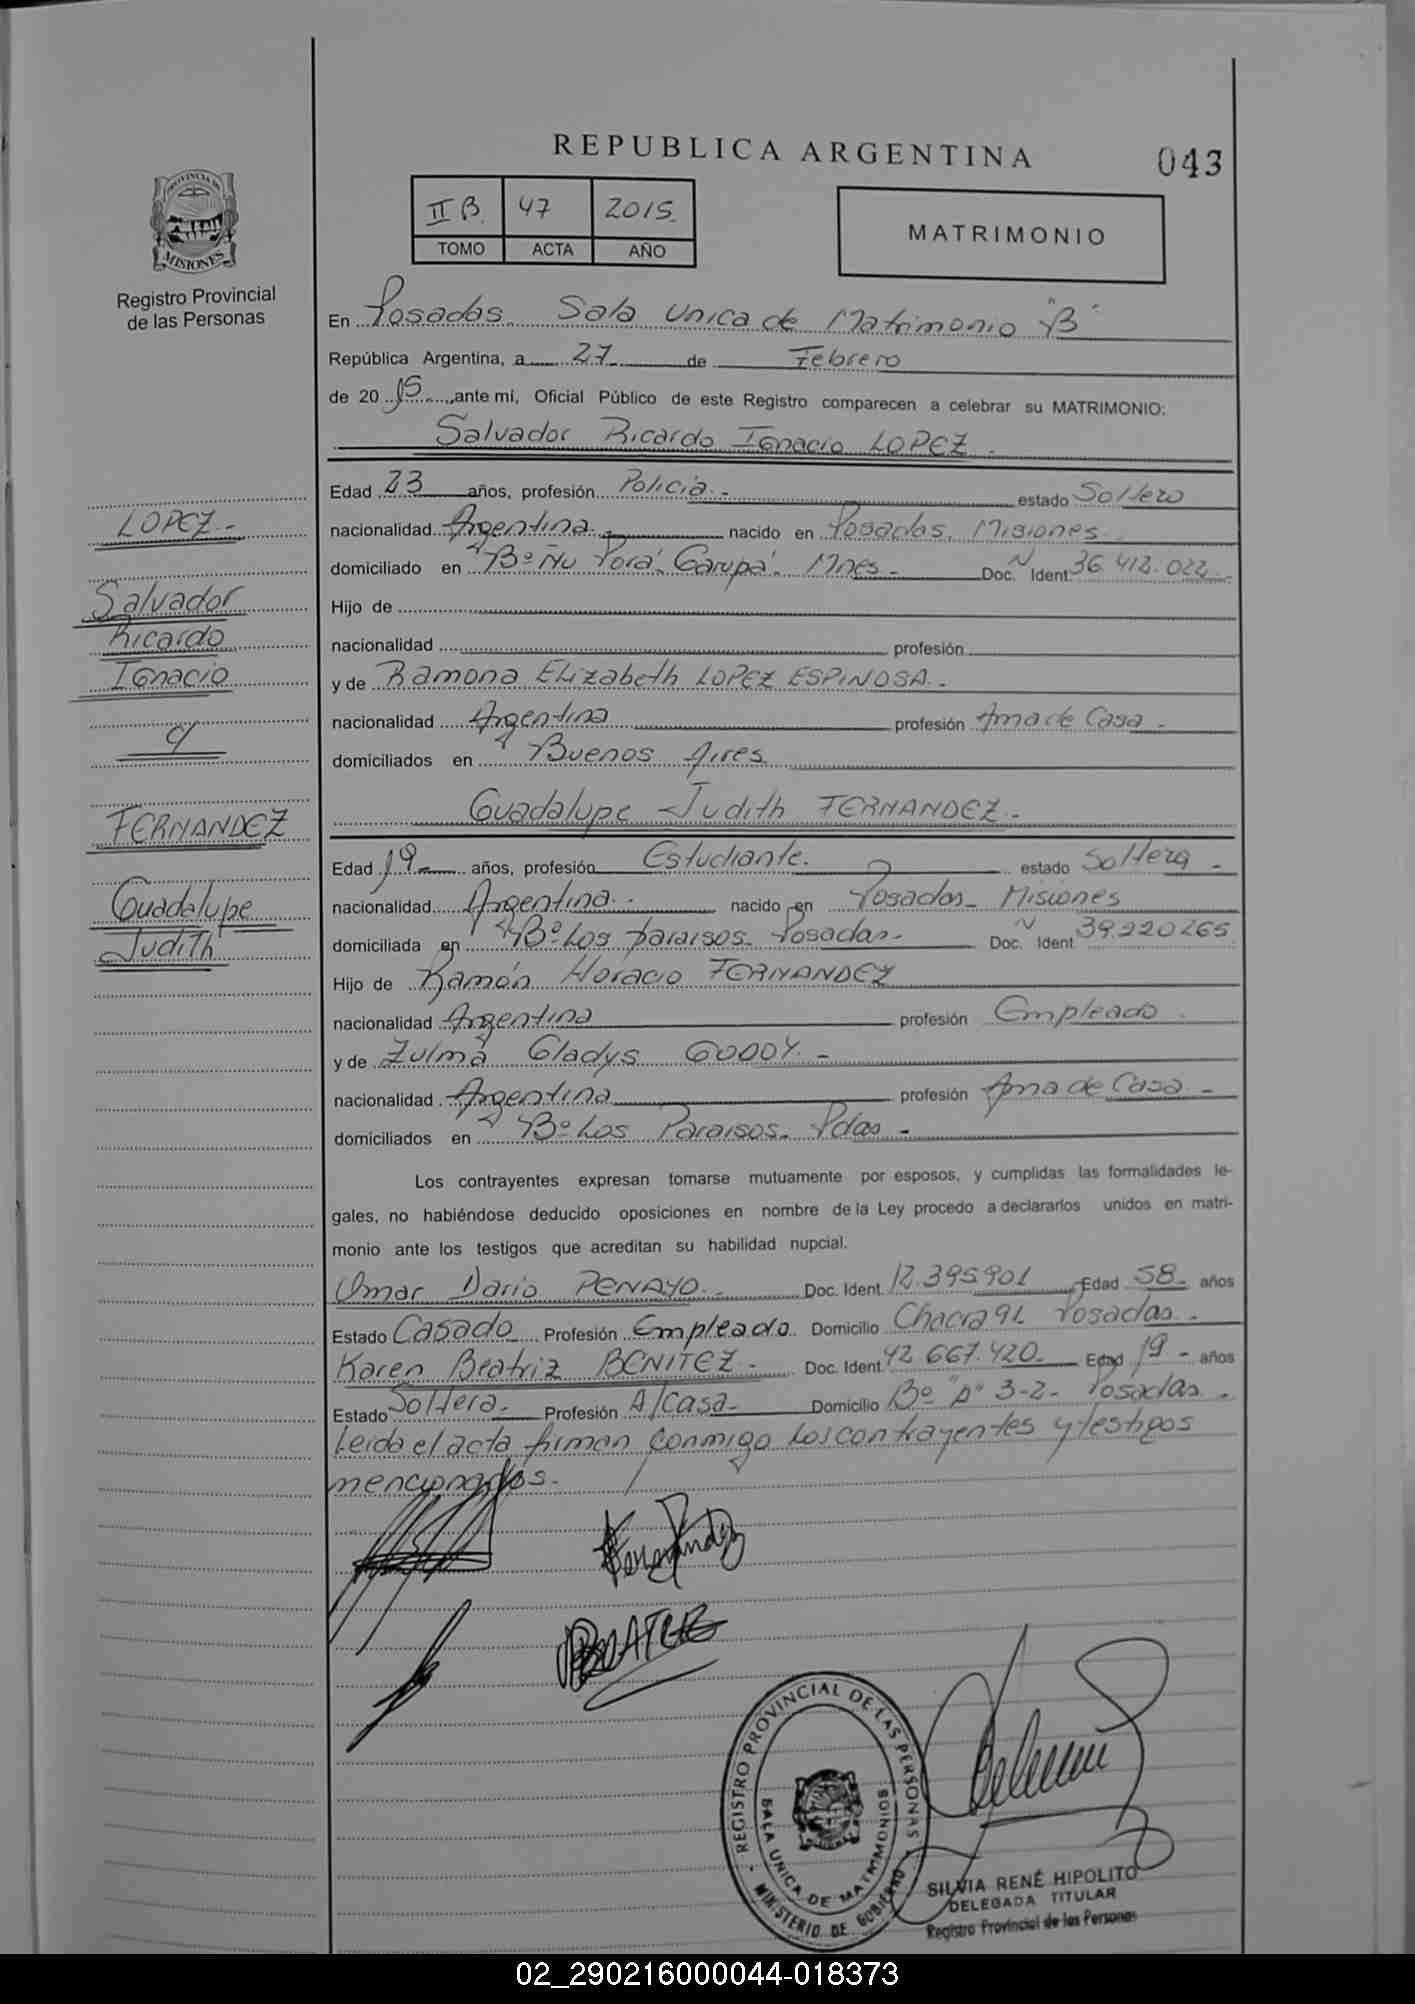 REPUBLICA ARGENTINA
043
PROVINCIA DE
MISIONES
Registro Provincial
de las Personas
II B. 47 2015.
TOMO ACTA AÑO
MATRIMONIO
En Posadas. Sala Unica de Matrimonio "B"
República Argentina, a 27 de Febrero
de 20 15 ,ante mi, Oficial Público de este Registro comparecen a celebrar su MATRIMONIO:
Salvador Ricardo Ignacio LOPEZ.
Edad 23 años, profesión Policía.- estado Soltero
nacionalidad Argentina. nacido en Posadas. Misiones.
domiciliado en Bº Ñu Porá. Garupá. Mnes.- Doc. N Ident 36.412.022.
Hijo de
nacionalidad profesión
y de Ramona Elizabeth LOPEZ ESPINOSA.-
nacionalidad Argentina profesión Ama de Casa.
domiciliados en Buenos Aires.
Guadalupe Judith FERNANDEZ.-
Edad 19 años, profesión Estudiante. estado Soltera -
nacionalidad Argentina.- nacido en Posadas- Misiones
domiciliada en Bº Los paraisos. Posadas- Doc. N Ident 39.220265
Hijo de Ramón Horacio FERNANDEZ
nacionalidad Argentina profesión Empleado.
y de Zulma Gladys GODOY.-
nacionalidad Argentina profesión Ama de Casa.-
domiciliados en Bº Los Paraisos. Pdas-
Los contrayentes expresan tomarse mutuamente por esposos, y cumplidas las formalidades le-
gales, no habiéndose deducido oposiciones en nombre de la Ley procedo a declararlos unidos en matri-
monio ante los testigos que acreditan su habilidad nupcial.
Omar Dario PENAYO.- Doc. Ident 12.395.901 Edad 58 años
Estado Casado Profesión Empleado. Domicilio Chacra 92 Posadas.
Karen Beatriz BENITEZ.- Doc. Ident 42.667.420. Edad 19- años
Estado Soltera. Profesión A/casa- Domicilio Bº "A" 3-2- Posadas.
Leida el acta firman conmigo los contrayentes y testigos
mencionados.-
LOPEZ-
Salvador
Ricardo
Ignacio
c/
FERNANDEZ
Guadalupe
Judith
Fernandez
REGISTRO PROVINCIAL DE LAS PERSONAS
SALA UNICA DE MATRIMONIOS
MINISTERIO DE GOBIERNO
SILVIA RENÉ HIPOLITO
DELEGADA TITULAR
Registro Provincial de las Personas
02_290216000044-018373